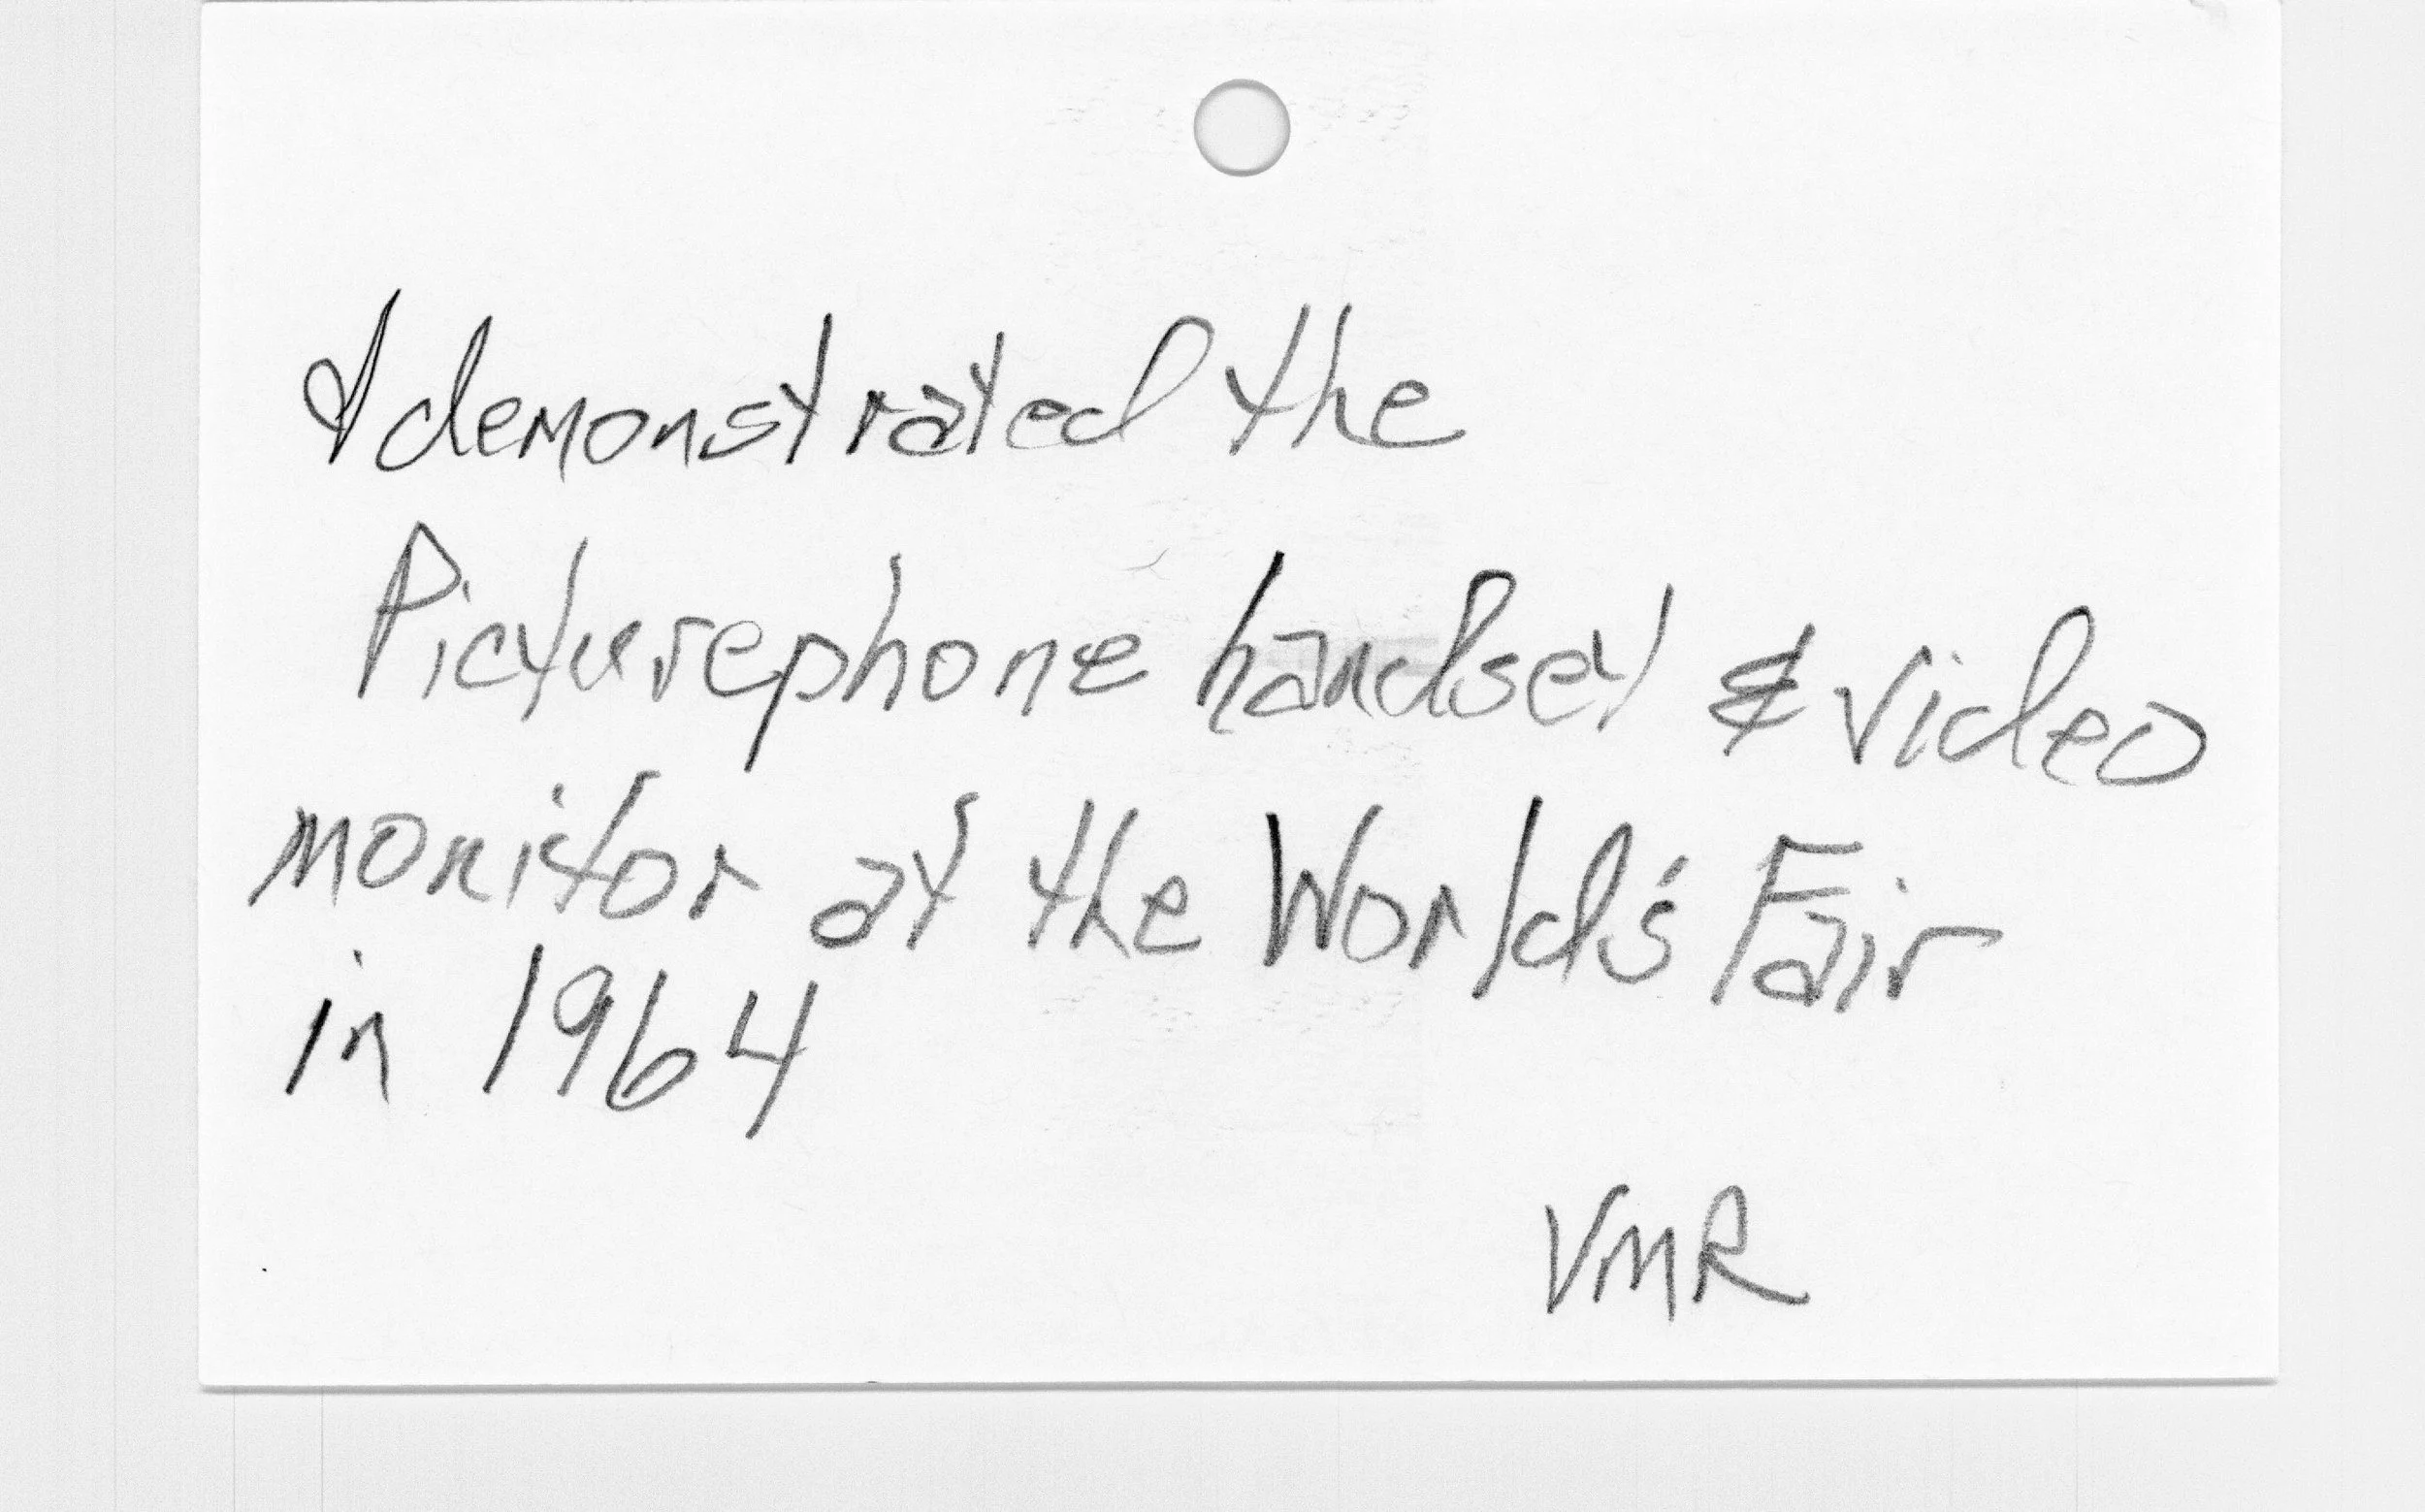 I demonstrated the
Picturephone handset & video
monitor at the World's Fair
in 1964
VMR